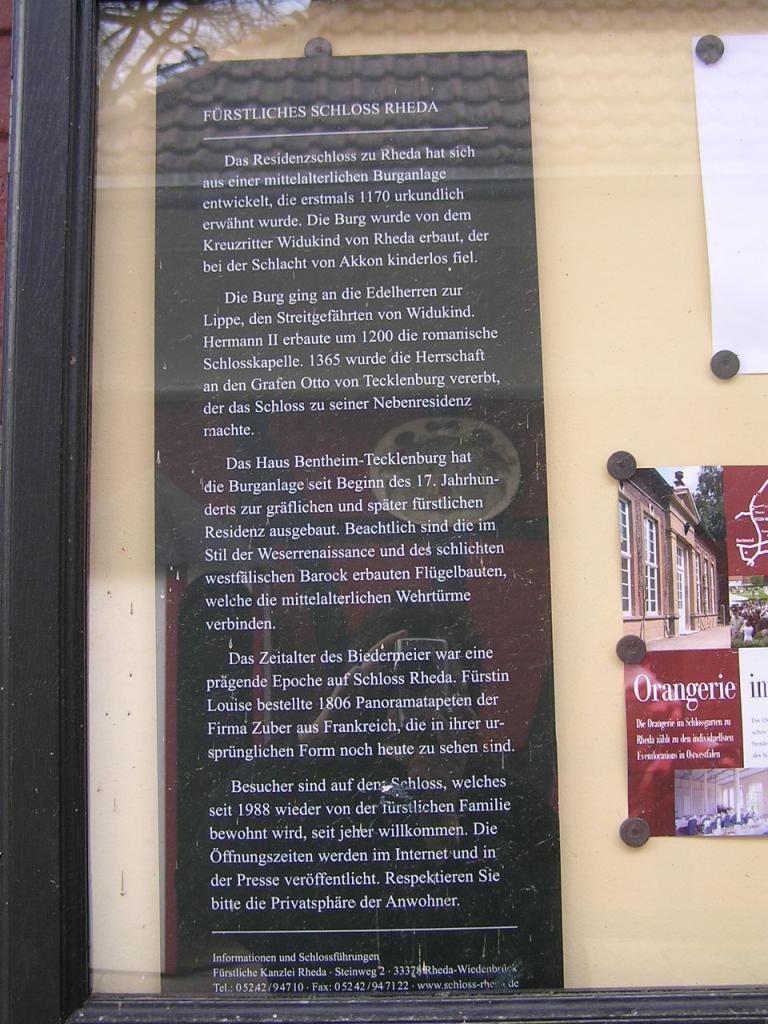 FÜRSTLICHES SCHLOSS RHEDA
Das Residenzschloss zu Rheda hat sich
aus einer mittelalterlichen Burganlage
entwickelt, die erstmals 1170 urkundlich
erwähnt wurde. Die Burg wurde von dem
Kreuzritter Widukind von Rheda erbaut, der
bei der Schlacht von Akkon kinderlos fiel.
Die Burg ging an die Edelherren zur
Lippe, den Streitgefährten von Widukind.
Hermann II erbaute um 1200 die romanische
Schlosskapelle. 1365 wurde die Herrschaft
an den Grafen Otto von Tecklenburg vererbt,
der das Schloss zu seiner Nebenresidenz
machte.
Das Haus Bentheim-Tecklenburg hat
die Burganlage seit Beginn des 17. Jahrhun-
derts zur gräflichen und später fürstlichen
Residenz ausgebaut. Beachtlich sind die im
Stil der Weserrenaissance und des schlichten
westfälischen Barock erbauten Flügelbauten,
welche die mittelalterlichen Wehrtürme
verbinden.
Das Zeitalter des Biedermeier war eine
prägende Epoche auf Schloss Rheda. Fürstin
Louise bestellte 1806 Panoramatapeten der
Firma Zuber aus Frankreich, die in ihrer ur-
sprünglichen Form noch heute zu sehen sind.
Besucher sind auf dem Schloss, welches
seit 1988 wieder von der fürstlichen Familie
bewohnt wird, seit jeher willkommen. Die
Öffnungszeiten werden im Internet und in
der Presse veröffentlicht. Respektieren Sie
bitte die Privatsphäre der Anwohner.
Informationen und Schlossführungen
Fürstliche Kanzlei Rheda · Steinweg 2 · 33378 Rheda-Wiedenbrück
Tel.: 05242/94710 · Fax: 05242/947122 · www.schloss-rheda.de
Orangerie im
Die Orangerie im Schlossgarten zu
Rheda zählt zu den individuellsten
Eventlocations in Ostwestfalen